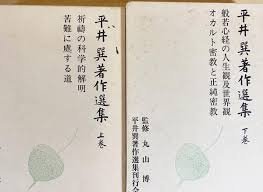 平井巽著作選集
上巻
祈祷の科学的解明
苦難に處する道
平井巽著作選集
下巻
般若心経の人生観及世界観
オカルト密教と正純密教
監修 丸山博
平井巽著作選集刊行会